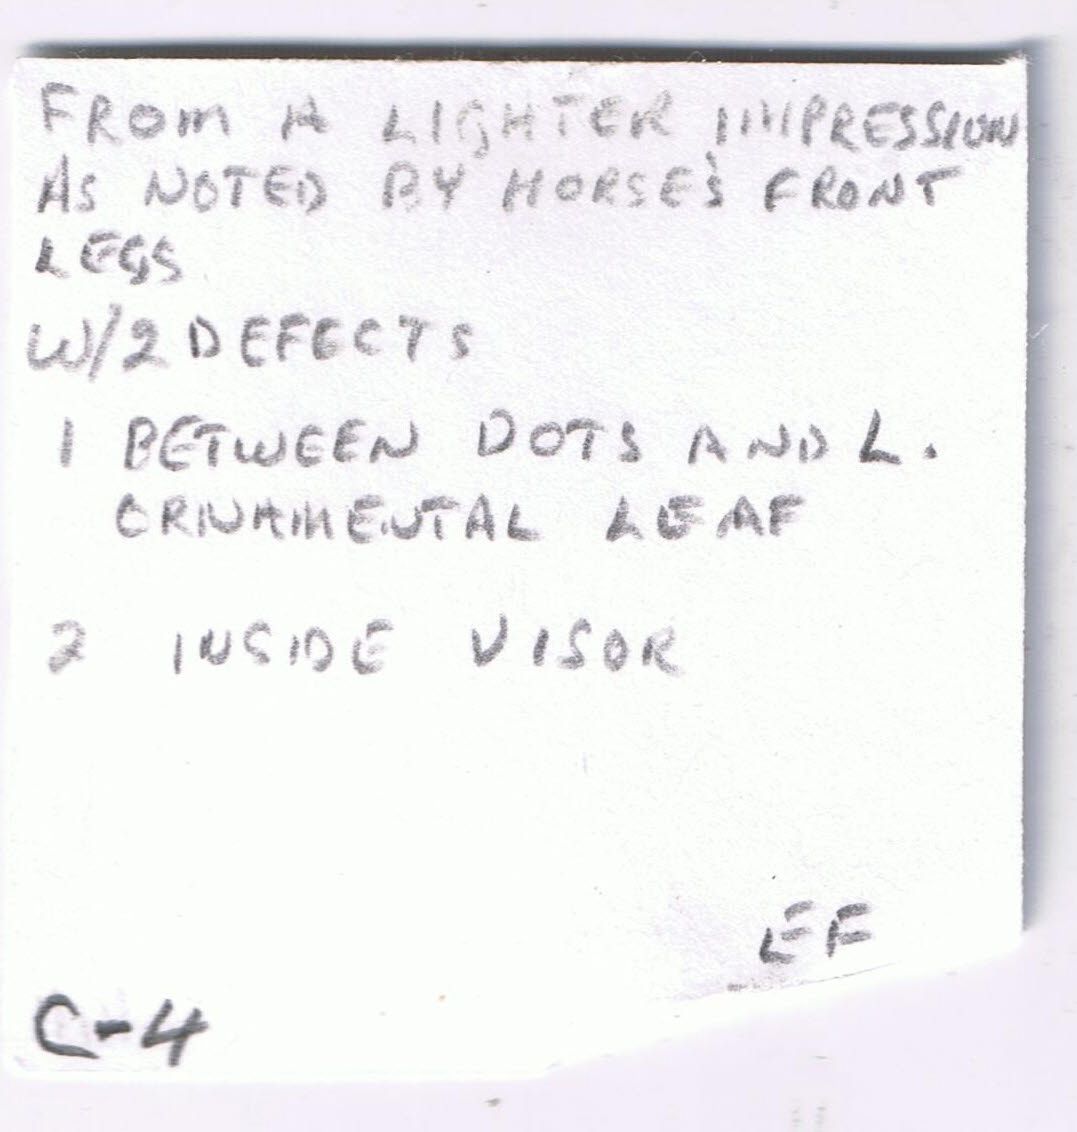 FROM A LIGHTER IMPRESSION
AS NOTED BY HORSE'S FRONT
LEGS
W/2 DEFECTS
1 BETWEEN DOTS AND L.
ORNAMENTAL LEAF
2 INSIDE VISOR
EF
C-4